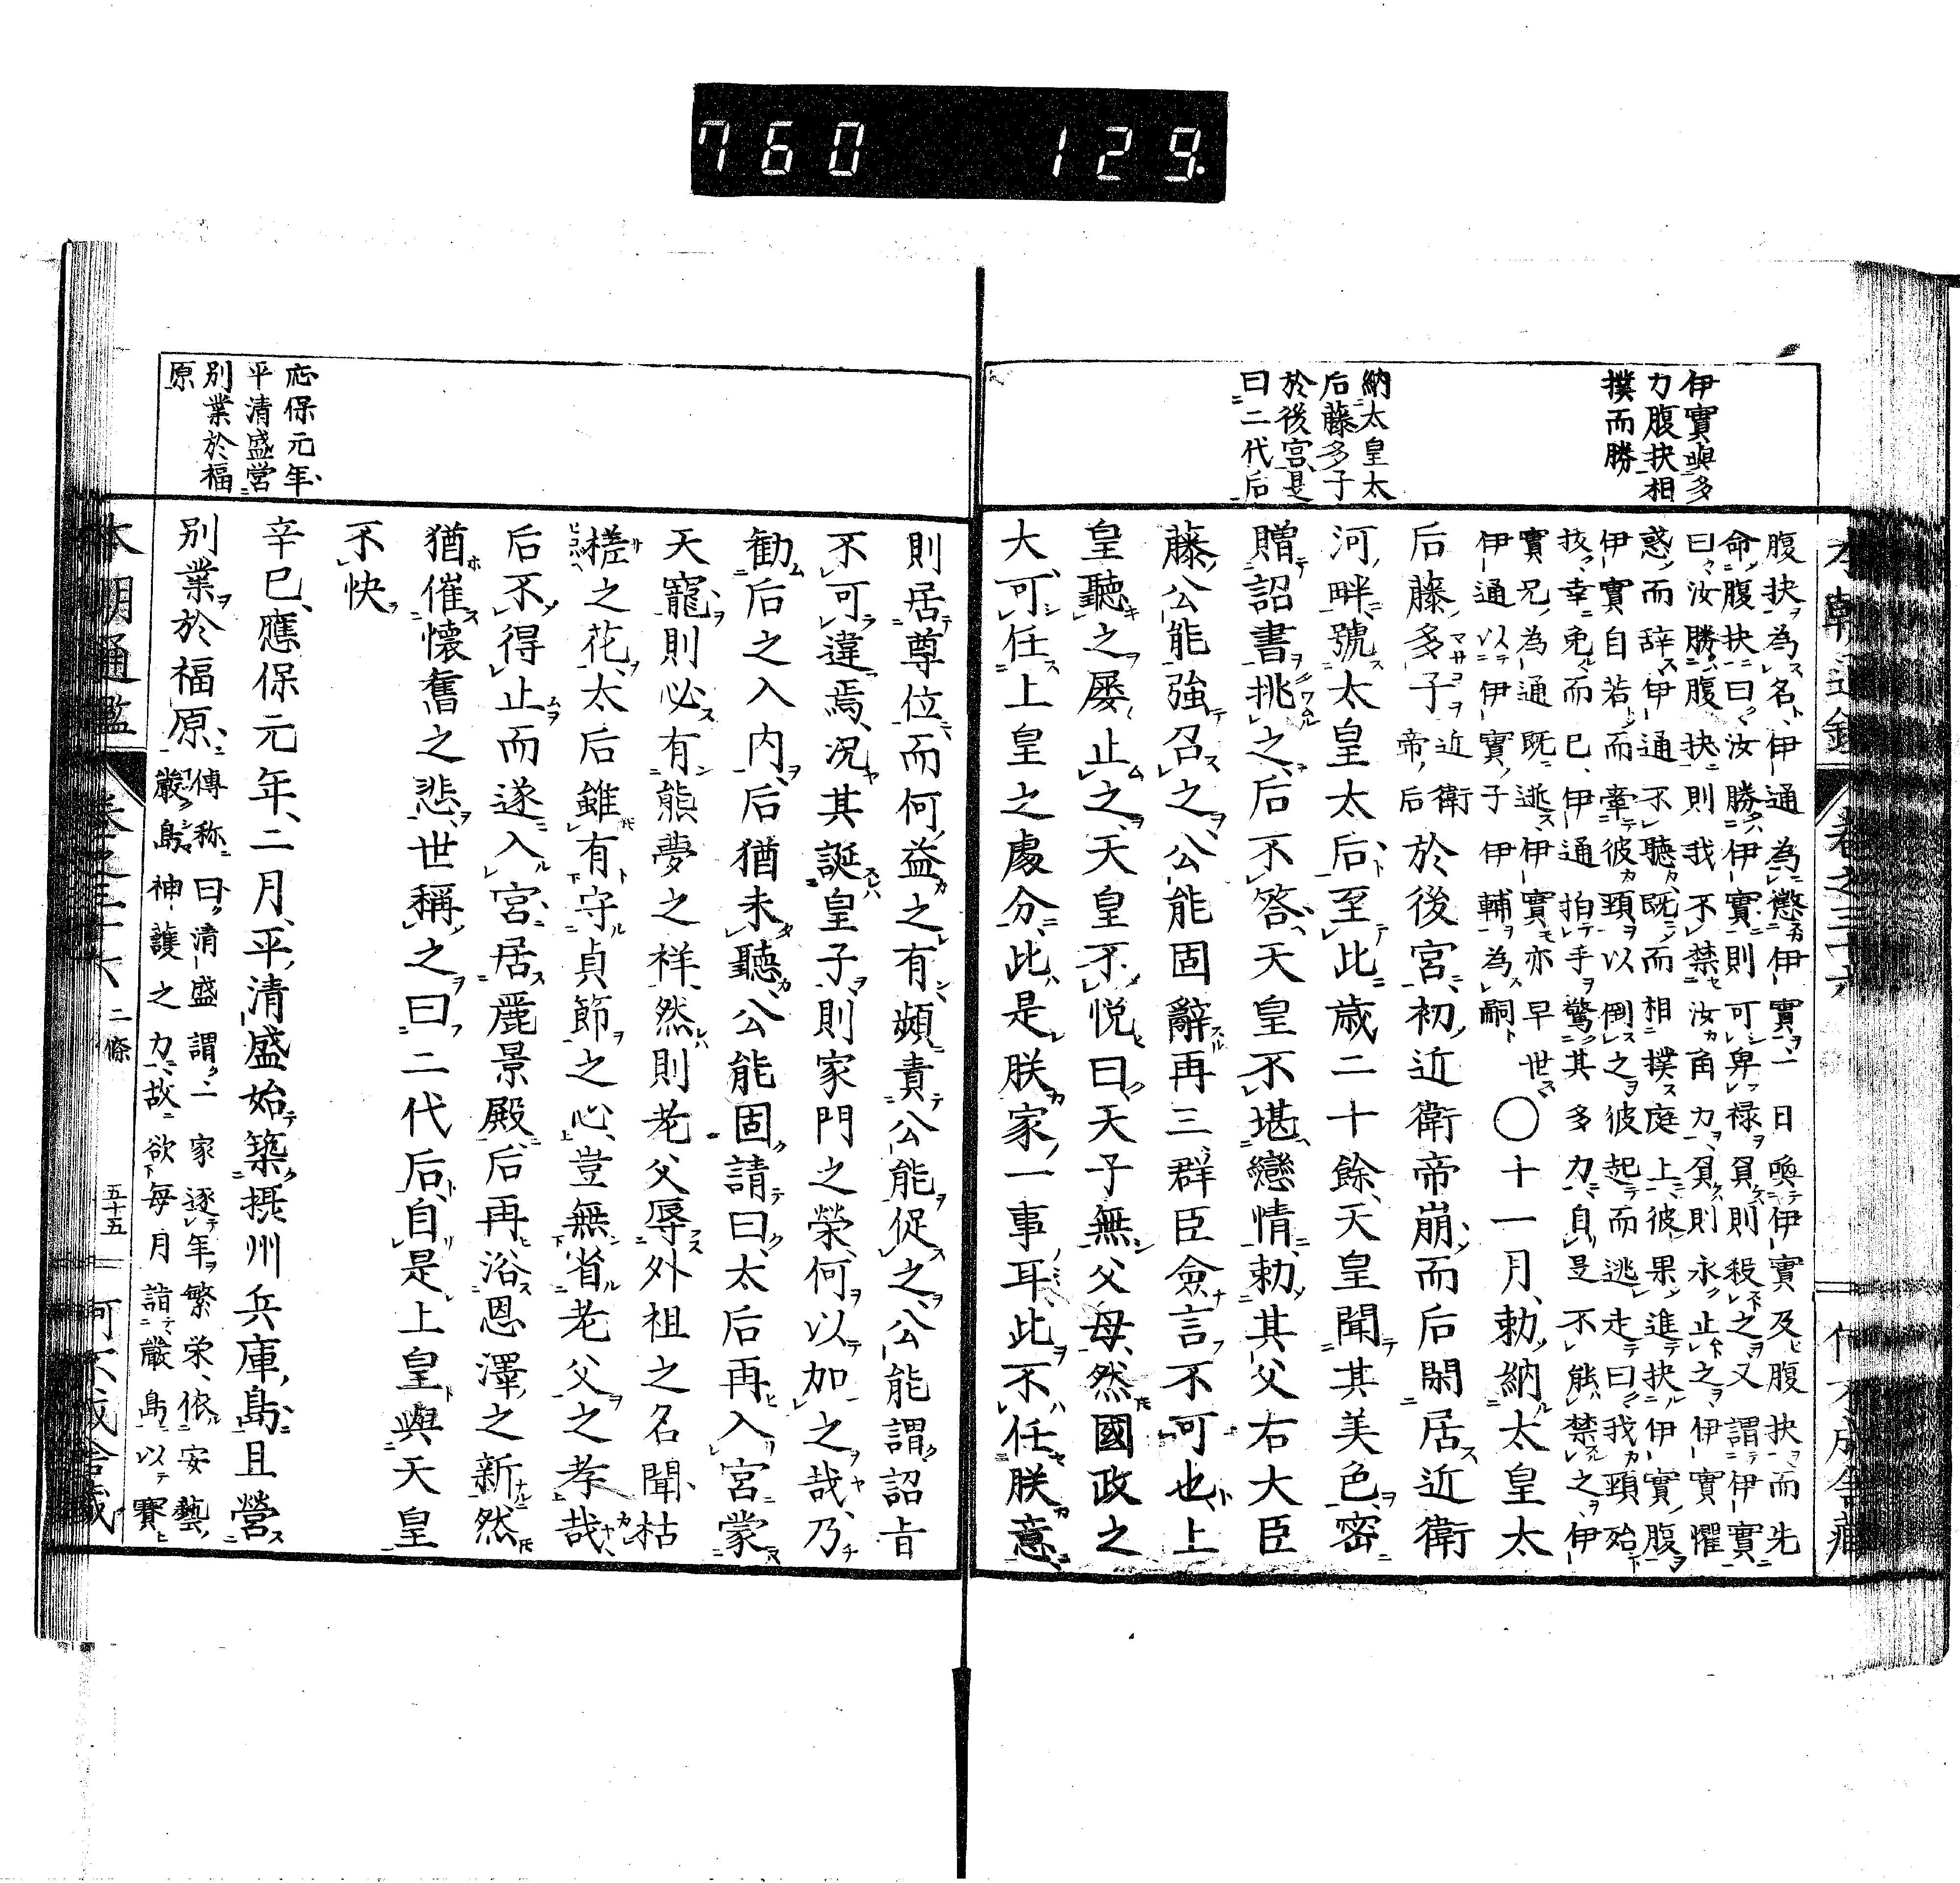 760 129
伊實與多
力腹抉相
撲而勝
納太皇太
后藤多子
於後宮是
曰二代后
腹抉為名伊通為懲伊實一日喚伊實及腹抉而先
命腹抉曰汝勝伊實則可卑禄負則殺之又謂伊實
曰汝勝腹抉則我不禁汝角力負則永止之伊實懼
惑而辞伊通不聽既而相撲庭上彼果進抉伊實腹
伊實自若而牽彼頸以倒之彼起而逃走曰我頸殆
抜幸免而已伊通拍手驚其多力自是不能禁之伊
實兄為通既逝伊實亦早世
伊通以伊實子伊輔為嗣
○十一月勅納太皇太
后藤多子近衛帝后於後宮初近衛帝崩而后閑居近衛
河畔號太皇太后至此歳二十餘天皇聞其美色密
贈詔書挑之后不答天皇不堪戀情勅其父右大臣
藤公能強召之公能固辭再三群臣僉言不可也上
皇聽之屡止之天皇不悦曰天子無父母然國政之
大可任上皇之處分此是朕家一事耳此不任朕意
則居尊位而何益之有頻責公能促之公能謂詔旨
不可違焉況其誕皇子則家門之榮何以加之哉乃
勧后之入内后猶未聽公能固請曰太后再入宮蒙
天寵則必有熊夢之祥然則老父辱外祖之名聞枯
槎之花太后雖有守貞節之心豈無省老父之孝哉
后不得止而遂入宮居麗景殿后再浴恩澤之新然
猶催懐舊之悲世稱之曰二代后自是上皇與天皇
不快
応保元年
平清盛営
別業於福
原
辛巳應保元年二月平清盛始築摂州兵庫島且營
別業於福原
傳称曰清盛謂一家逐年繁栄依安藝
厳島神護之力故欲毎月詣厳島以賽
本朝通鑑 巻之三十六 二條 五十五